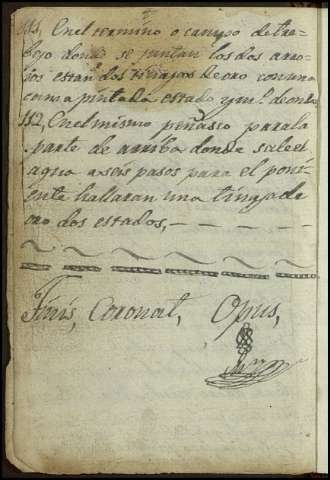 111, En el termino o campo de tre-
bejo donde se juntan los dos arro-
ios estan dos tinajas de oro con una
a pintada estado y m.º de onde
112, En el mismo peñasco para la
parte de arriba donde sale el
agua a seis pasos para el poni-
ente hallaran una tinaja de
oro dos estados,
Finis, Coronat, Opus,